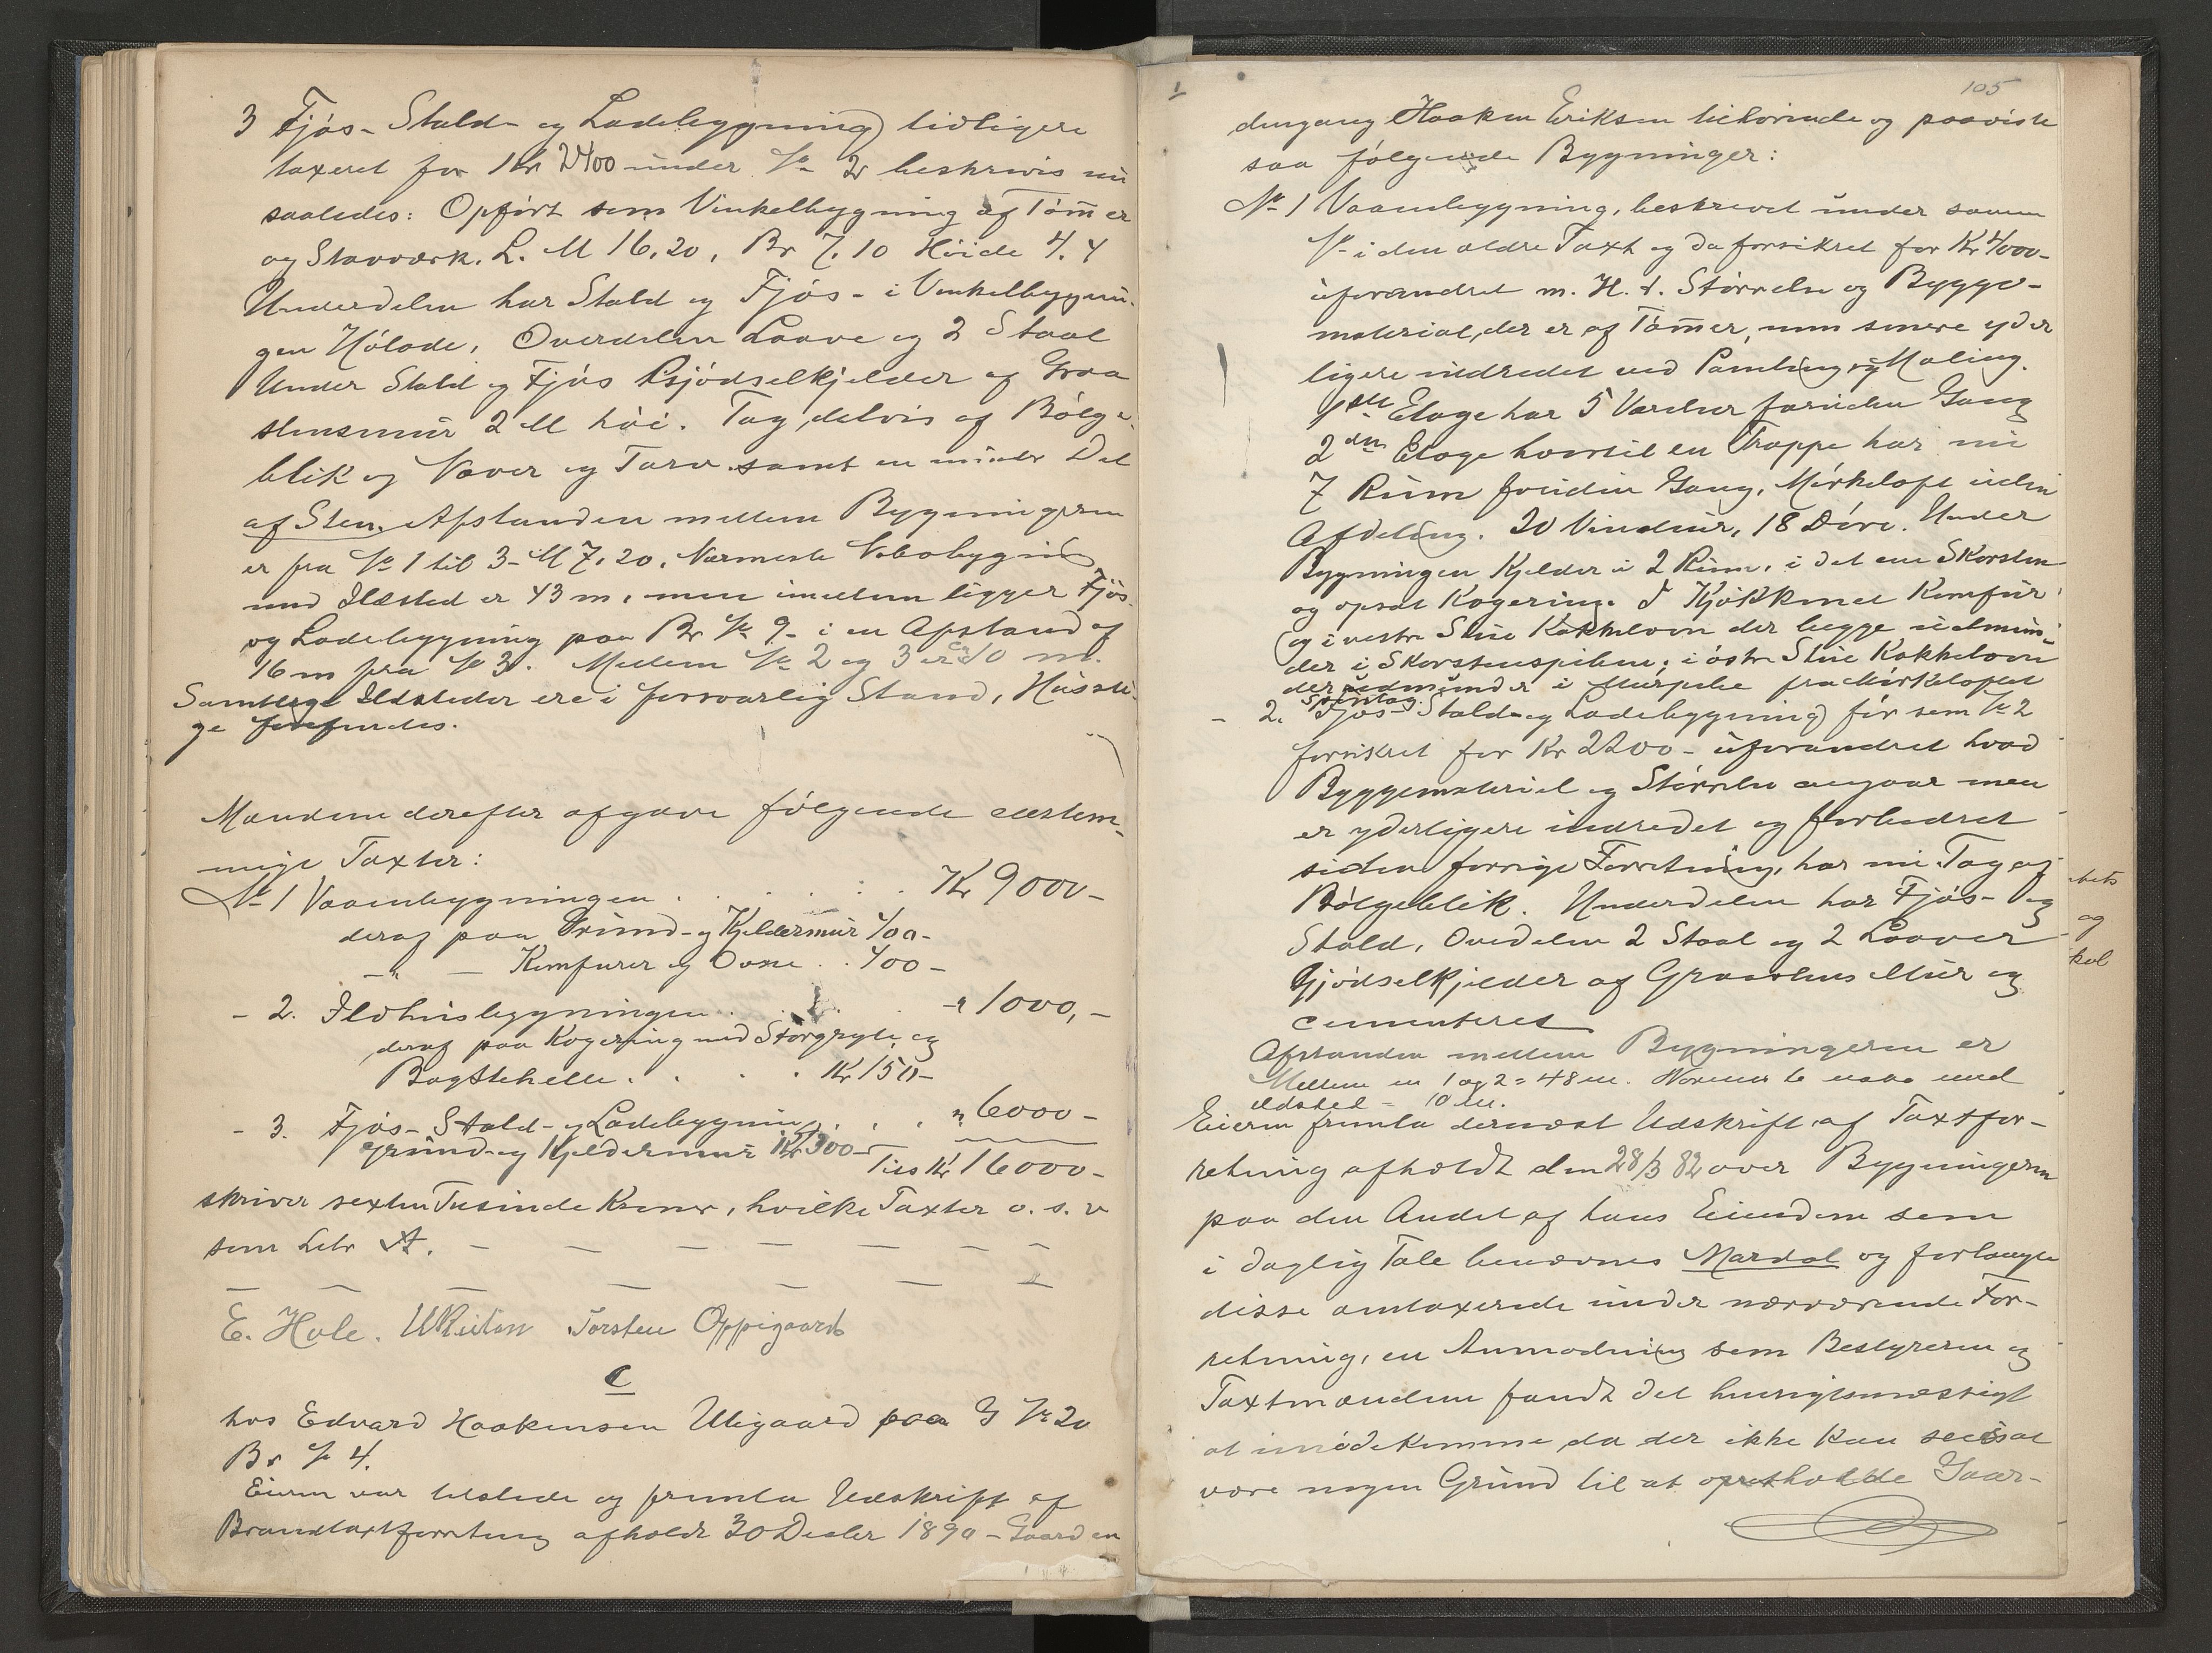 3 Fjøs- Stald- og Ladebygning tidligere
taxeret for Kr 2400 under No 2 beskrives nu
saaledes: Opført som Vinkelbygning af Tømmer
og Stavværk. L. M 16.20, Br 7.10 Høide 4.4
Underdelen har Stald og Fjøs - i Vinkelbygnin-
gen Hølade, Overdelen Laave og 2 Staal
Under Stald og Fjøs Gjødselkjelder af Graa
stensmur 2 M høi. Tag, delvis af Bølge-
blik og Næver og Torv samt en mindre Del
af Sten. Afstanden mellem Bygningerne
er fra No 1 til 3 - M 7.20. Nærmeste Nabobygning
med Ildsted er 43 m, men imellem ligger Fjøs-
og Ladebygning paa Br No 9 - i en Afstand af
16 m fra No 3. Mellem No 2 og 3 er 10 m.
Samtlige Ildsteder ere i forsvarlig Stand, Husst-
ge forefindes.
Mændene derefter afgave følgende eenstem-
mige Taxter:
No 1 Vaaenbygningen . . . . . Kr 9000 -
deraf paa Grund- og Kjeldermur 400 -
- " - Komfurer og Ovne . . 400 -
- 2. Ildhusbygningen . . . - " 1000, -
deraf paa Kogering med Storgryte og
Bagstehelle . . . . Kr 150 -
- 3. Fjøs- Stald- og Ladebygning . . . " 6000 -
Grund- og Kjeldermur Kr 300 -
Tils Kr 16000 -
skriver sexten Tusinde Kroner, hvilke Taxter o. s. v
som Litr A. - - - - - - -
- - - - - - -
E. Hole. Torsten Oppigaard
C
hos Edvard Haakensen Utigaard paa G No 20
Br No 4.
Eieren var tilstede og fremla Udskrift af
Brandtaxtforretning afholdt 30 Decbr 1890 - Gaarden
105
dengang Haaken Eriksen tilhørende og paaviste
saa følgende Bygninger:
No 1 Vaaenbygning, beskrevet under samme
No i den ældre Taxt og da forsikret for Kr 4000 -
uforandret m. H. t. Størrelse og Bygge-
material, der er af Tømmer, men senere yder
ligere indredet ved Panling og Maling.
1ste Etage har 5 Værelser foruden Gang
2den Etage hvortil en Trappe har nu
7 Rum foruden Gang, Mørkeloft uden
Afdeling. 20 Vinduer, 18 Døre. Under
Bygningen Kjelder i 2 Rum, i det ene Skorsten
og opsat Kogering. I Kjøkkenet Komfur
og i vestre Stue Kakkelovn der begge udmun-
der i Skorstenspiben; i østre Stue Kakkelovn
der udmunder i Murpibe fra Mørkeloftet
- 2. Fjøs- Stald- og Ladebygning før som No 2
forsikret for Kr 2200 - uforandret hvad
Byggematerial og Størrelse angaar men
er yderligere indredet og forbedret
siden forrige Forretning, har nu Tag af
Bølgeblik. Underdelen har Fjøs- og
Stald, Overdelen 2 Staal og 2 Laaver
Gjødselkjelder af Graastens Mur og
cementeret
Afstanden mellem Bygningerne er
Mellem nr 1 og 2 = 48 m. med
Ildsted = 10 m.
Eieren fremla dernæst Udskrift af Taxtfor-
retning afholdt den 28/3 82 over Bygningerne
paa den Andel af hans Eiendom som
i daglig Tale benævnes Mardal og forlangte
disse omtaxerede under nærværende For-
retning, en Anmodning som Bestyreren og
Taxtmændene fandt det hensigtsmæssigt
at imødekomme da der ikke kan sees at
være nogen Grund til at opretholde Gaar-
og